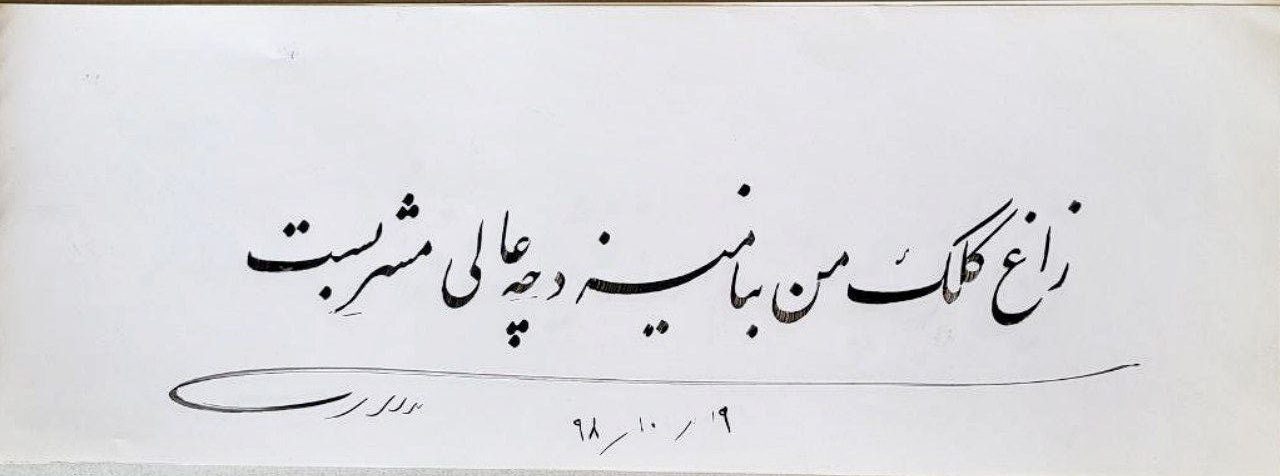 زاغ کلک من بنامیزد چه عالی مشربست
۹۸/۱۰/۱۹